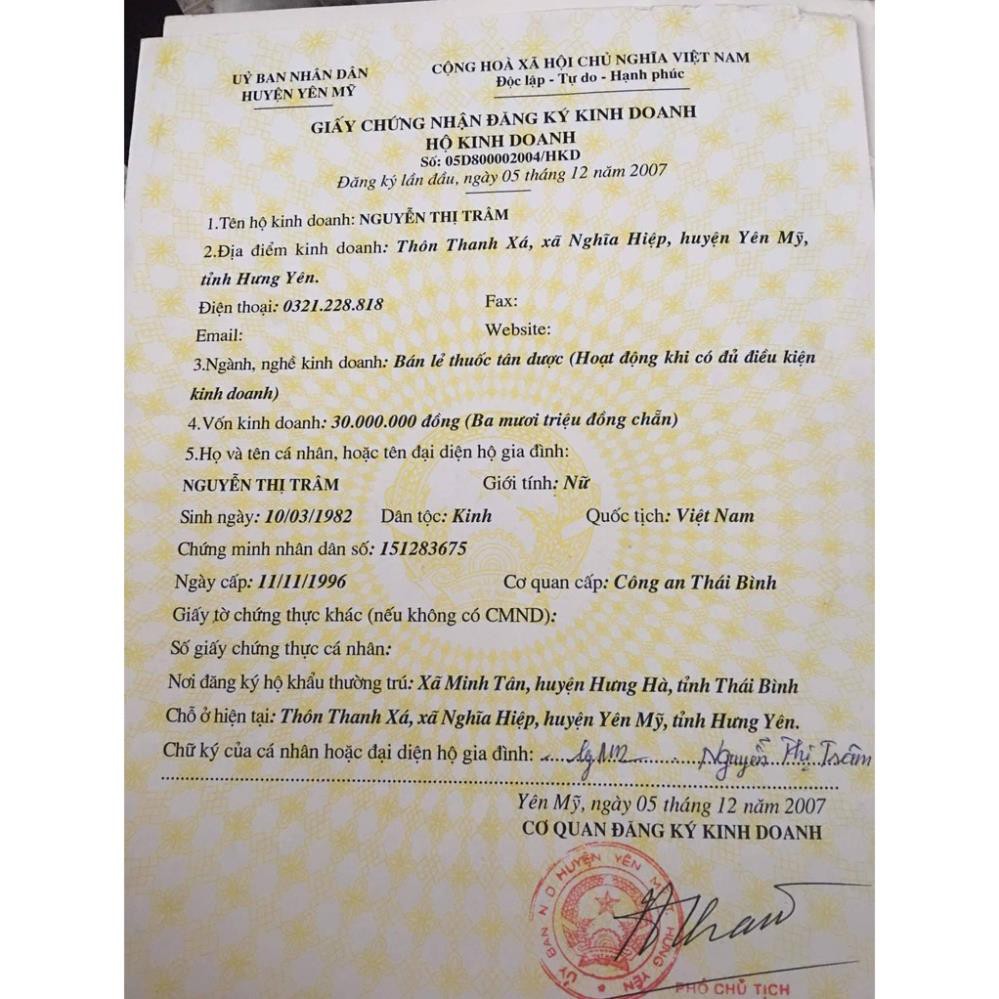 UỶ BAN NHÂN DÂN
HUYỆN YÊN MỸ
CỘNG HOÀ XÃ HỘI CHỦ NGHĨA VIỆT NAM
Độc lập - Tự do - Hạnh phúc
GIẤY CHỨNG NHẬN ĐĂNG KÝ KINH DOANH
HỘ KINH DOANH
Số: 05D800002004/HKD
Đăng ký lần đầu, ngày 05 tháng 12 năm 2007
1.Tên hộ kinh doanh: NGUYỄN THỊ TRÂM
2.Địa điểm kinh doanh: Thôn Thanh Xá, xã Nghĩa Hiệp, huyện Yên Mỹ,
tỉnh Hưng Yên.
Điện thoại: 0321.228.818 Fax:
Email: Website:
3.Ngành, nghề kinh doanh: Bán lẻ thuốc tân dược (Hoạt động khi có đủ điều kiện
kinh doanh)
4.Vốn kinh doanh: 30.000.000 đồng (Ba mươi triệu đồng chẵn)
5.Họ và tên cá nhân, hoặc tên đại diện hộ gia đình:
NGUYỄN THỊ TRÂM Giới tính: Nữ
Sinh ngày: 10/03/1982 Dân tộc: Kinh Quốc tịch: Việt Nam
Chứng minh nhân dân số: 151283675
Ngày cấp: 11/11/1996 Cơ quan cấp: Công an Thái Bình
Giấy tờ chứng thực khác (nếu không có CMND):
Số giấy chứng thực cá nhân:
Nơi đăng ký hộ khẩu thường trú: Xã Minh Tân, huyện Hưng Hà, tỉnh Thái Bình
Chỗ ở hiện tại: Thôn Thanh Xá, xã Nghĩa Hiệp, huyện Yên Mỹ, tỉnh Hưng Yên.
Chữ ký của cá nhân hoặc đại diện hộ gia đình: Nguyễn Thị Trâm
Yên Mỹ, ngày 05 tháng 12 năm 2007
CƠ QUAN ĐĂNG KÝ KINH DOANH
ỦY BAN N D HUYỆN YÊN M HƯNG YÊN
PHÓ CHỦ TỊCH